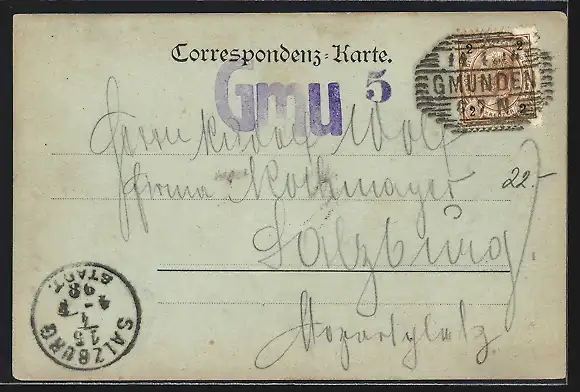 Correspondenz-Karte.
2 2
GMUNDEN
2 2
Gmu 5
Herrn Rudolf Wolf
Firma Rothmayer
22.-
Salzburg
Mozartplatz
SALZBURG
STADT.
15
4
98